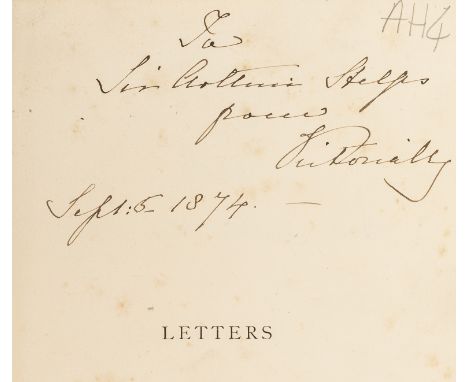 AH4
To
Sir Arthur Helps
from
Victoria R
Sept: 6 1874. —
LETTERS